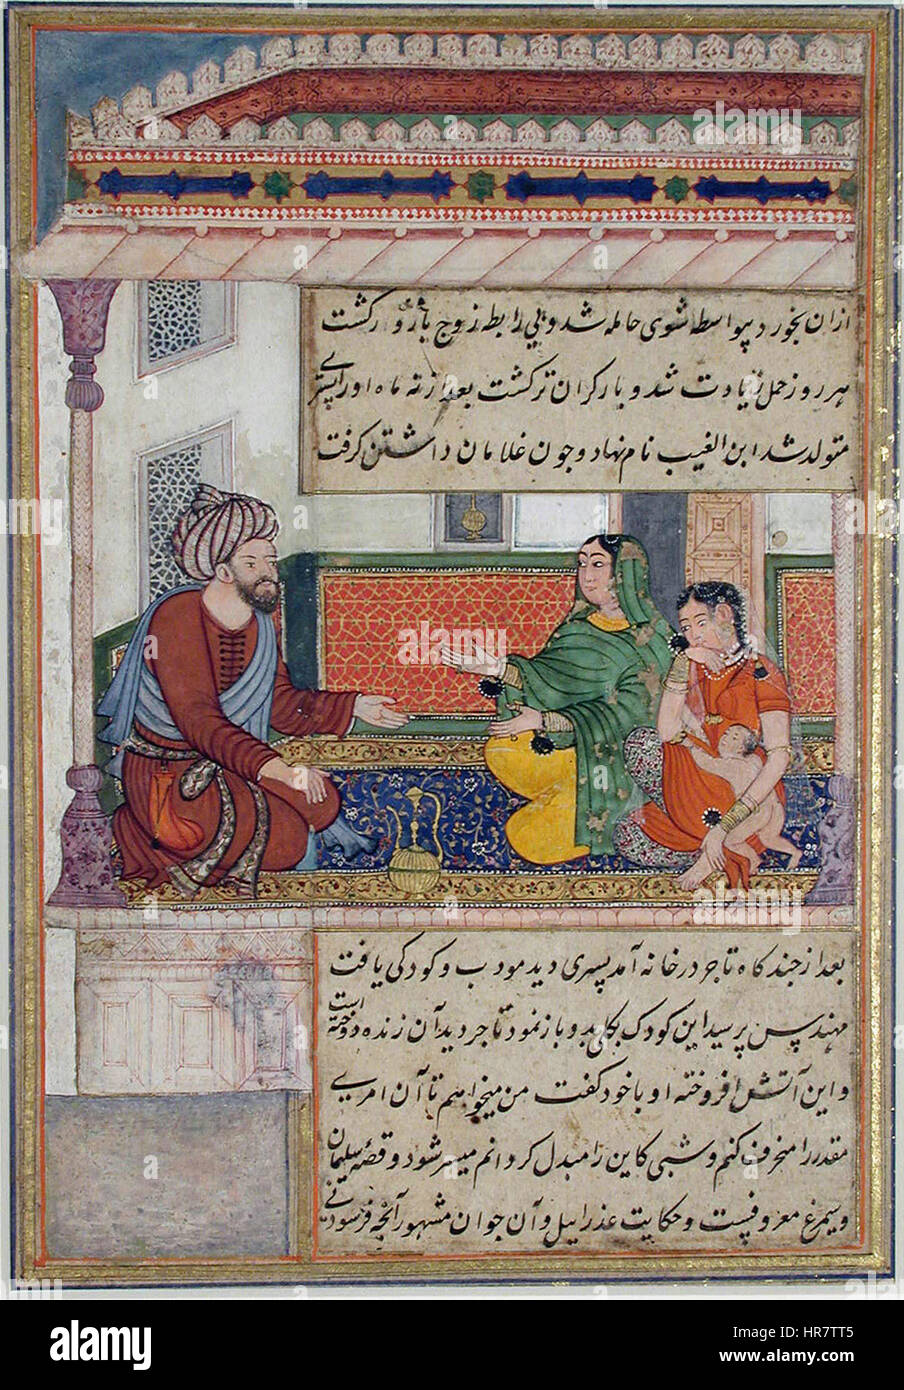 ازان بخورد بیواسطه شوی حامله شد و بی رابطه زوج بارور کشت
هر روز حمل زیادت شد و بار کران تر کشت بعد از نه ماه اورا پسری
متولد شد ابن الغیب نام نهاد و چون غلامان داشتن کرفت
بعد از چند کاه تاجر در خانه آمد پسری دید مودب و کودکی یافت
مهندس پرسید این کودک و باز نمود تاجر دید آن زنده دوخته است
و این آتش افروخته او با خود کفت من میخواهم تا آن امری
مقدر را منحرف کنم و شبی کاین را مبدل کردانم میسر شود و قصه سلیمان
و سیمرغ معروفست و حکایت عذراییل و آن جوان مشهور آنچه فرسودنی
alamy
alamy
Image ID: HR7TT5
www.alamy.com